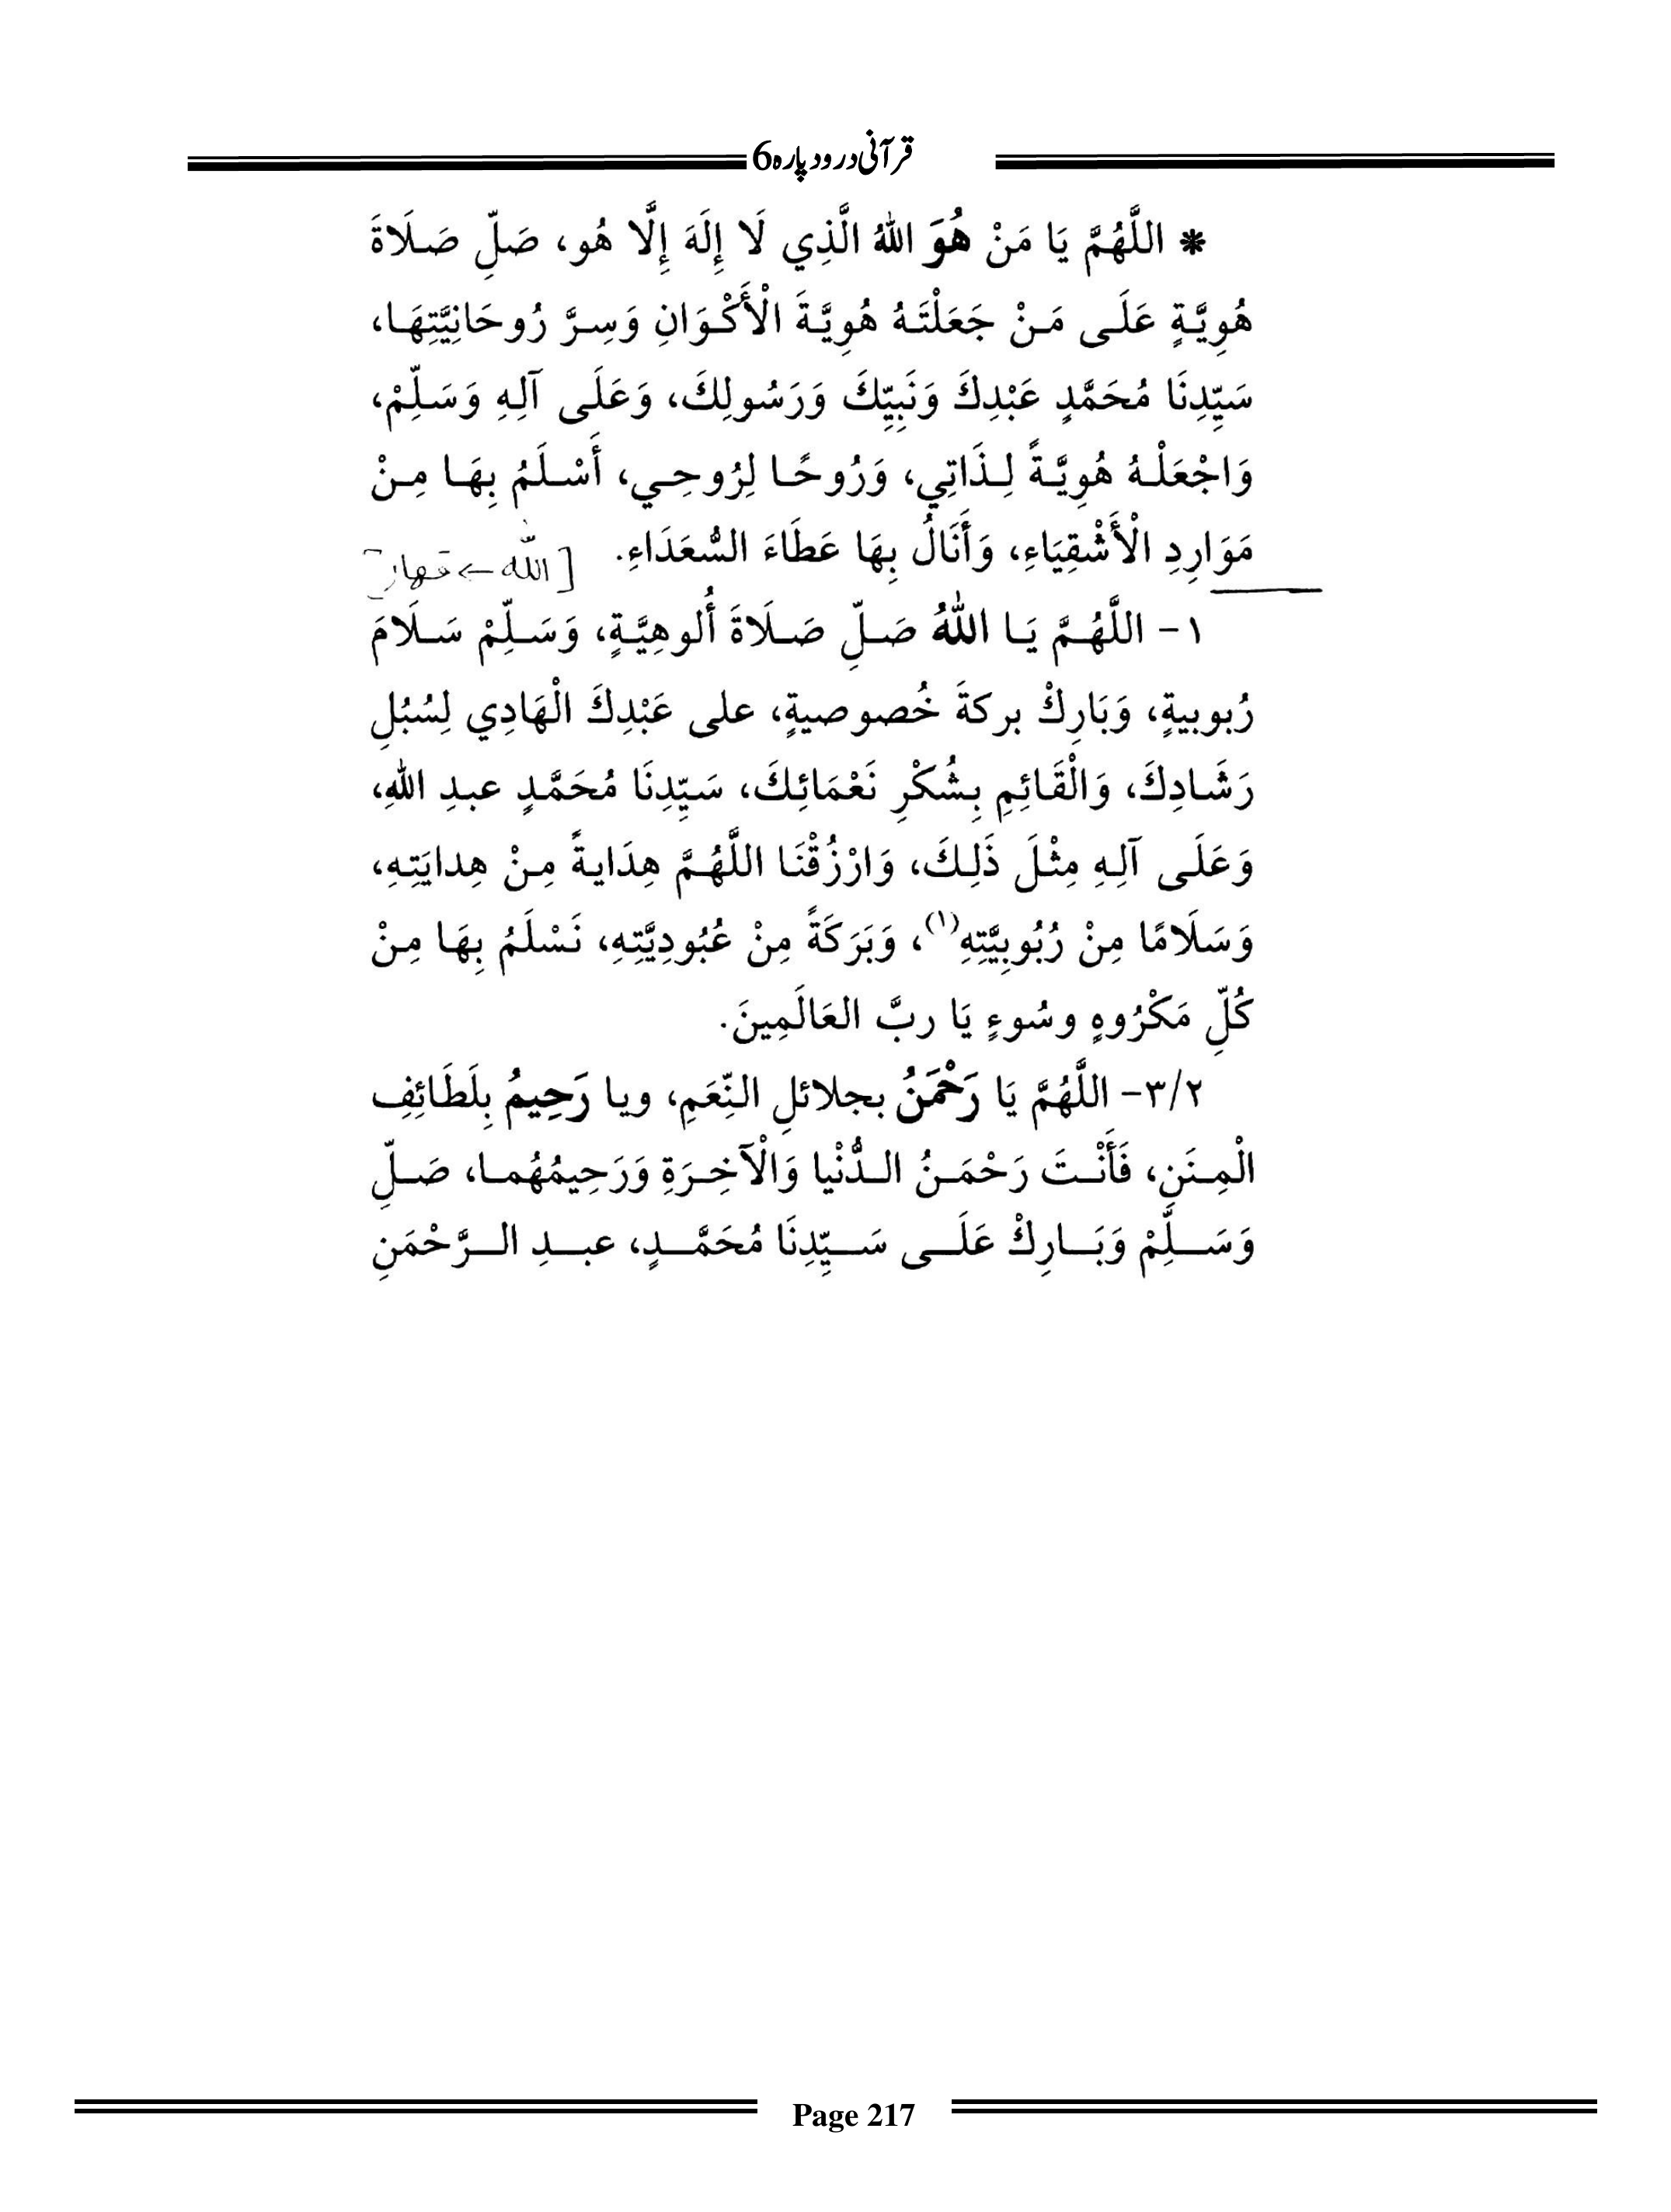 قرآنی درود پارہ 6
* اللَّهُمَّ يَا مَنْ هُوَ اللهُ الَّذِي لَا إِلَهَ إِلَّا هُو، صَلِّ صَلَاةَ
هُوِيَّةٍ عَلَى مَنْ جَعَلْتَهُ هُوِيَّةَ الْأَكْوَانِ وَسِرَّ رُوحَانِيَّتِهَا،
سَيِّدِنَا مُحَمَّدٍ عَبْدِكَ وَنَبِيِّكَ وَرَسُولِكَ، وَعَلَى آلِهِ وَسَلِّمْ،
وَاجْعَلْهُ هُوِيَّةً لِذَاتِي، وَرُوحًا لِرُوحِي، أَسْلَمُ بِهَا مِنْ
مَوَارِدِ الْأَشْقِيَاءِ، وَأَنَالُ بِهَا عَطَاءَ السُّعَدَاءِ. [الله ← قهار]
١- اللَّهُمَّ يَا اللهُ صَلِّ صَلَاةَ أُلوهِيَّةٍ، وَسَلِّمْ سَلَامَ
رُبوبيةٍ، وَبَارِكْ بركةَ خُصوصيةٍ، على عَبْدِكَ الْهَادِي لِسُبُلِ
رَشَادِكَ، وَالْقَائِمِ بِشُكْرِ نَعْمَائِكَ، سَيِّدِنَا مُحَمَّدٍ عبدِ اللهِ،
وَعَلَى آلِهِ مِثْلَ ذَلِكَ، وَارْزُقْنَا اللَّهُمَّ هِدَايةً مِنْ هِدايَتِهِ،
وَسَلَامًا مِنْ رُبُوبِيَّتِهِ(١)، وَبَرَكَةً مِنْ عُبُودِيَّتِهِ، نَسْلَمُ بِهَا مِنْ
كُلِّ مَكْرُوهٍ وسُوءٍ يَا ربَّ العَالَمِينَ.
٣/٢- اللَّهُمَّ يَا رَحْمَنُ بجلائلِ النِّعَمِ، ويا رَحِيمُ بِلَطَائِفِ
الْمِنَنِ، فَأَنْتَ رَحْمَنُ الدُّنْيا وَالْآخِرَةِ وَرَحِيمُهُما، صَلِّ
وَسَلِّمْ وَبَارِكْ عَلَى سَيِّدِنَا مُحَمَّدٍ، عبدِ الرَّحْمَنِ
Page 217